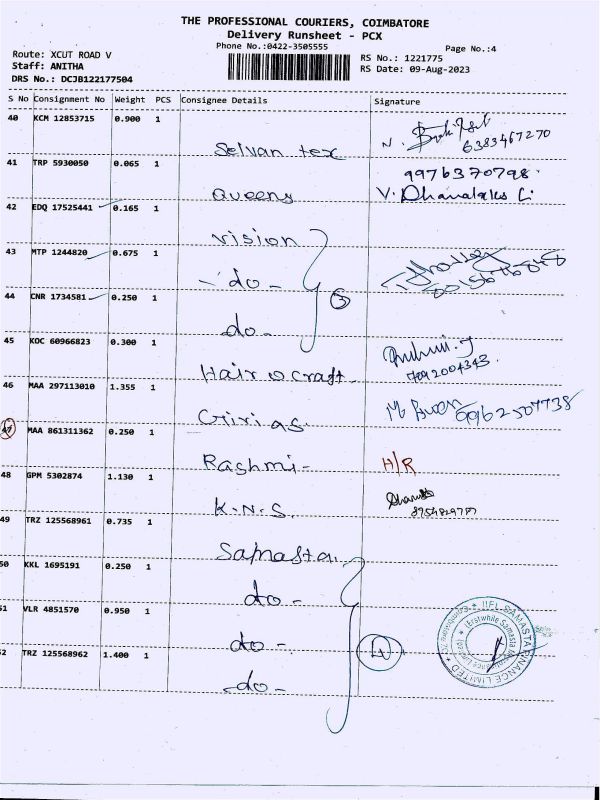 THE PROFESSIONAL COURIERS, COIMBATORE
Delivery Runsheet - PCX
Phone No.:0422-3505555
Page No.:4
Route: XCUT ROAD V
Staff: ANITHA
DRS No.: DCJB122177504
RS No.: 1221775
RS Date: 09-Aug-2023
S No Consignment No Weight PCS Consignee Details Signature
40 KCM 12853715 0.900 1
Selvan tex
6383467270
41 TRP 5930050 0.065 1
9976370798
Queens
V. Dhanalaks Li
42 EDQ 17525441 0.165 1
Vision
43 MTP 1244820 0.675 1
- do -
3
44 CNR 1734581 0.250 1
do -
45 KOC 60966823 0.300 1
Hair o craft.
7092004343
46 MAA 297113010 1.355 1
Giri as.
9962507738
47 MAA 861311362 0.250 1
Rashmi-
H/R
48 GPM 5302874 1.130 1
K.N.S.
49 TRZ 125568961 0.735 1
Samasta.
50 KKL 1695191 0.250 1
do -
51 VLR 4851570 0.950 1
do -
4
52 TRZ 125568962 1.400 1
-do -
IIFL SAMASTA FINANCE LIMITED